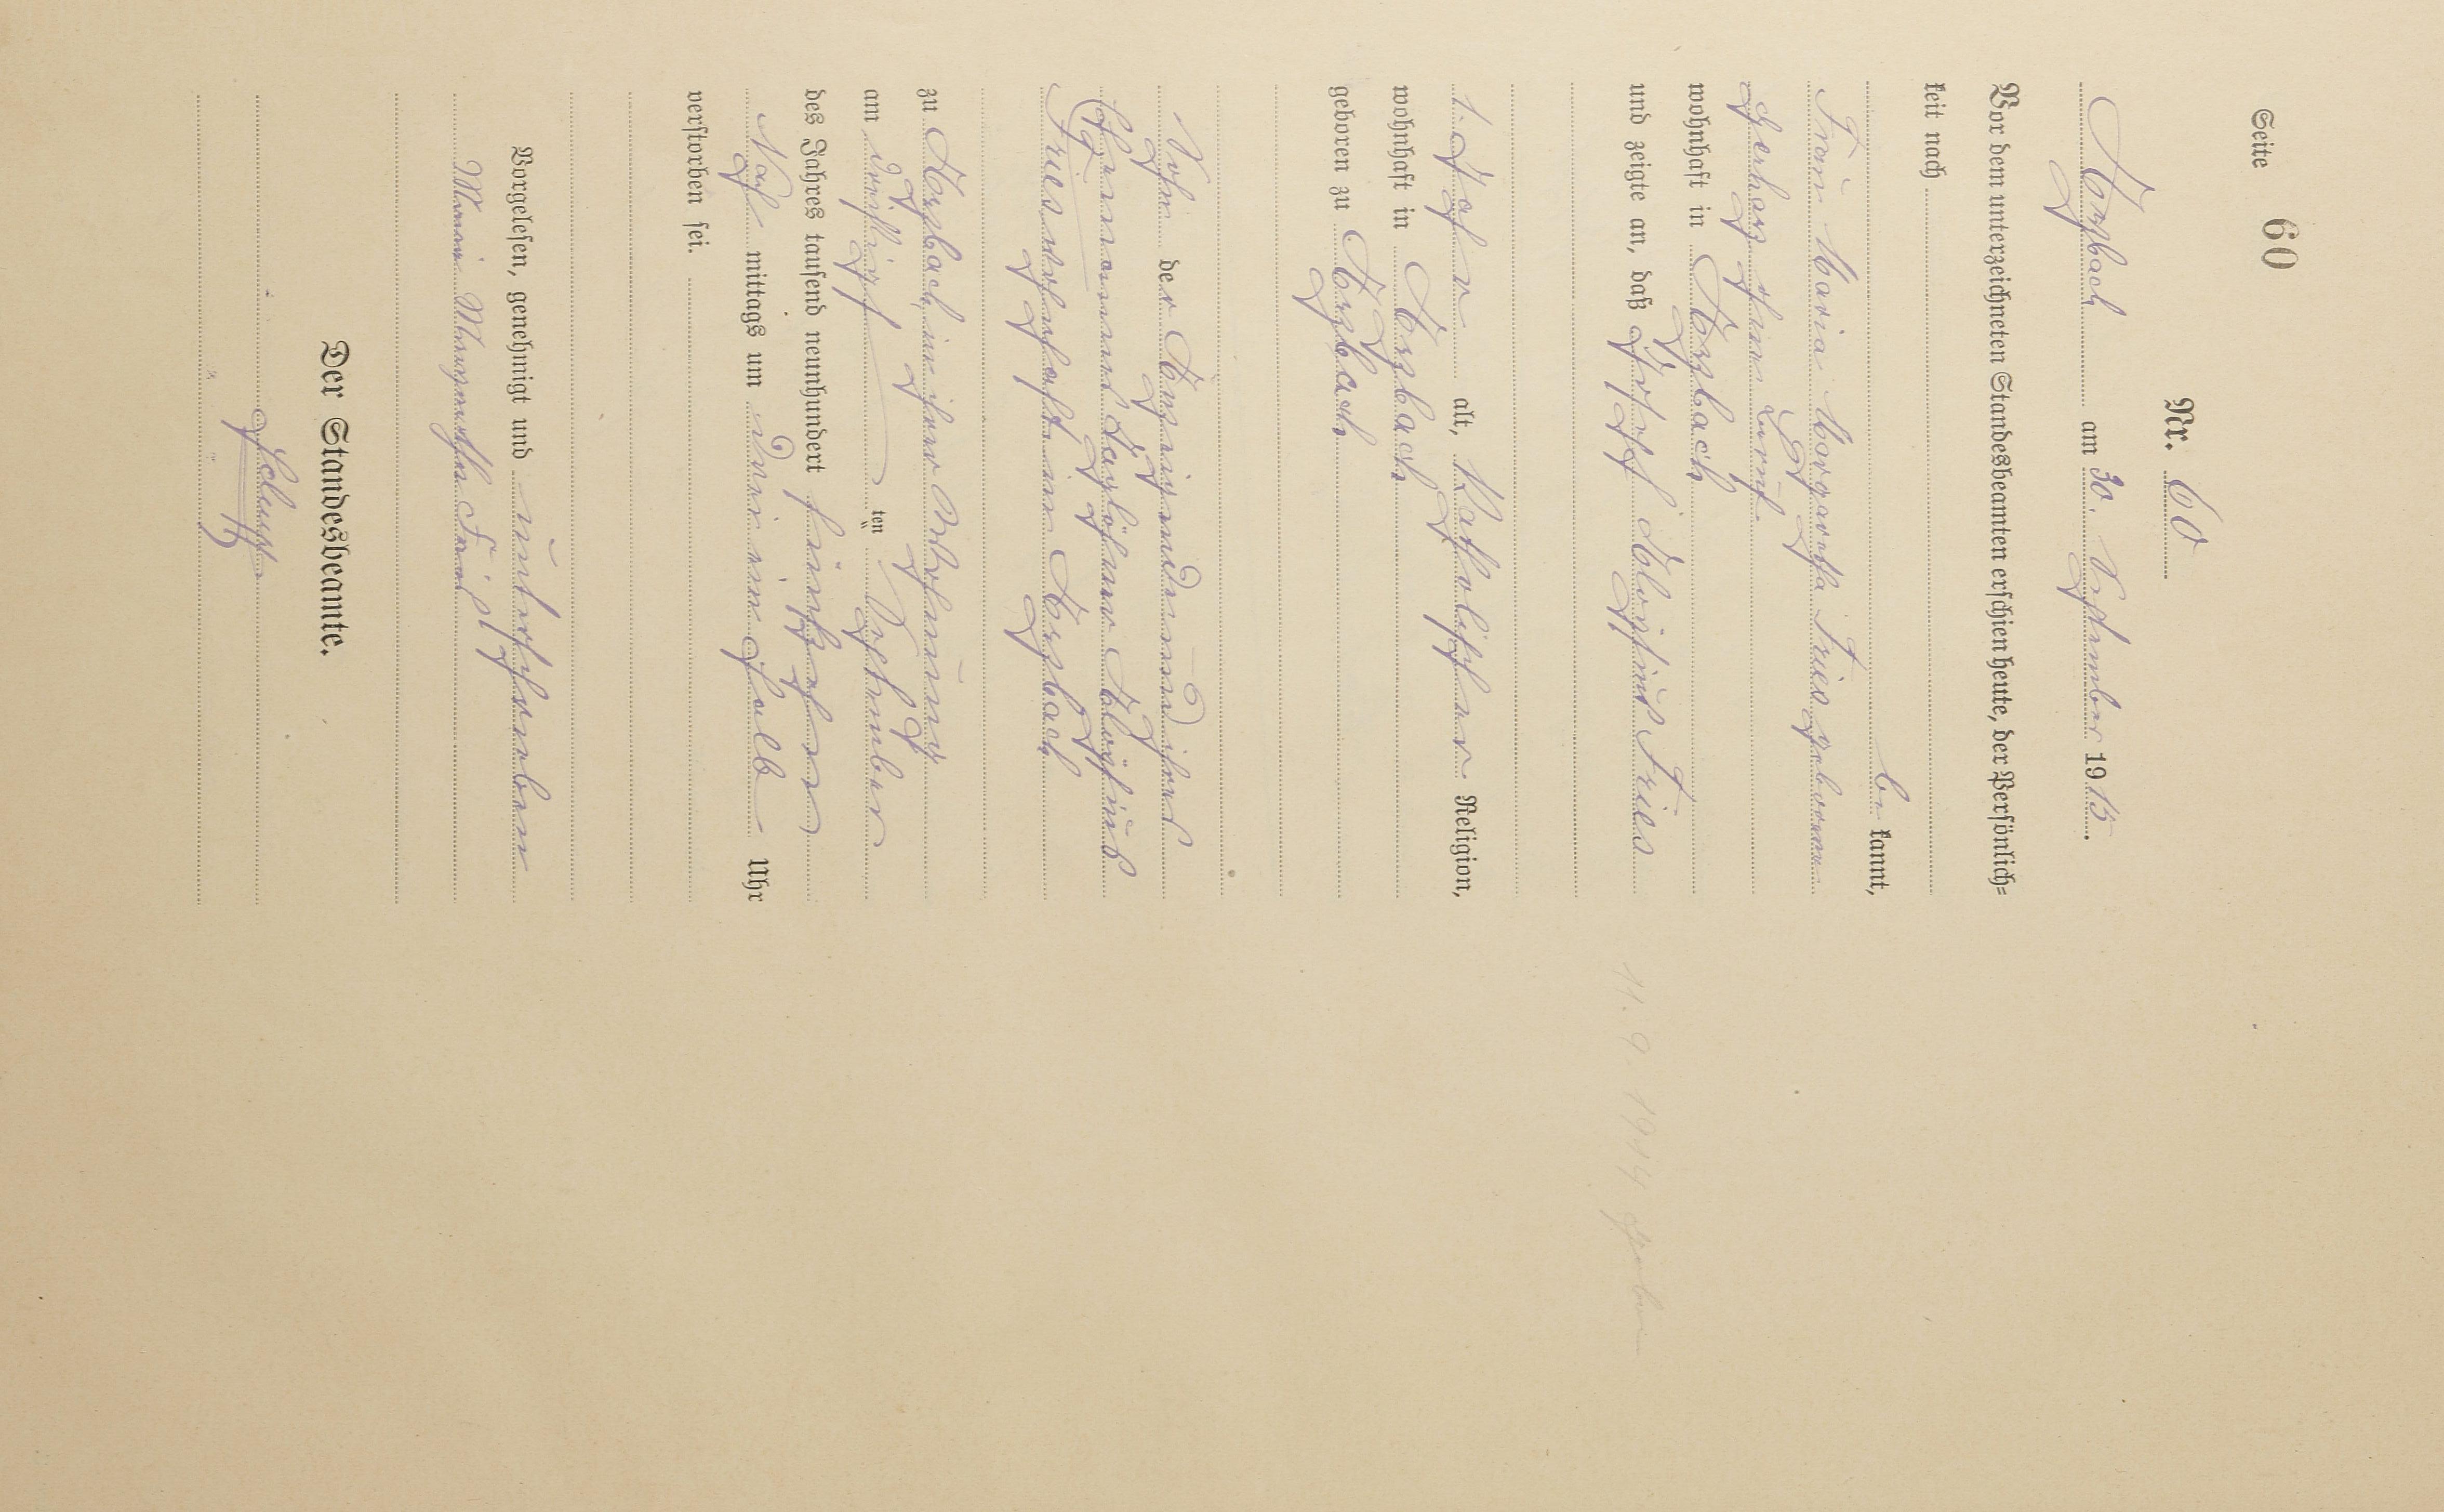 Seite 60
Nr. 60
Arzbach am 30. September 1915.
Vor dem unterzeichneten Standesbeamten erschien heute, der Persönlich=
keit nach
be kannt,
Frau Maria Margaretha Fries geborene
Gerharz ohne Beruf
wohnhaft in Arzbach
und zeigte an, daß Josef Aloysius Fries
1. Jahr alt, Katholischer Religion,
wohnhaft in Arzbach
geboren zu Arzbach
Sohn der Anzeigenden und ihres
Ehemannes Taglöhner Aloysius
Fries wohnhaft in Arzbach
zu Arzbach in ihrer Wohnung
am dreißigsten September
des Jahres tausend neunhundert fünfzehn
Nach mittags um drei ein halb Uhr
verstorben sei.
Vorgelesen, genehmigt und unterschrieben
Maria Margaretha Fries
Der Standesbeamte.
11. 9 1914 geboren